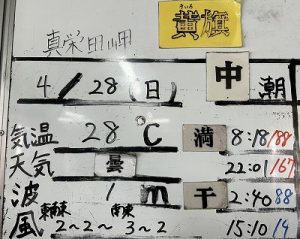 きいろ
黄旗
真栄田岬
4/28(日) 中 朝
気温 28℃ 満 8:18/188
天気 曇 22:01/167
波 1m 干 2:40/88
風 東南東 2~2~ 南東 3~2 15:10/14